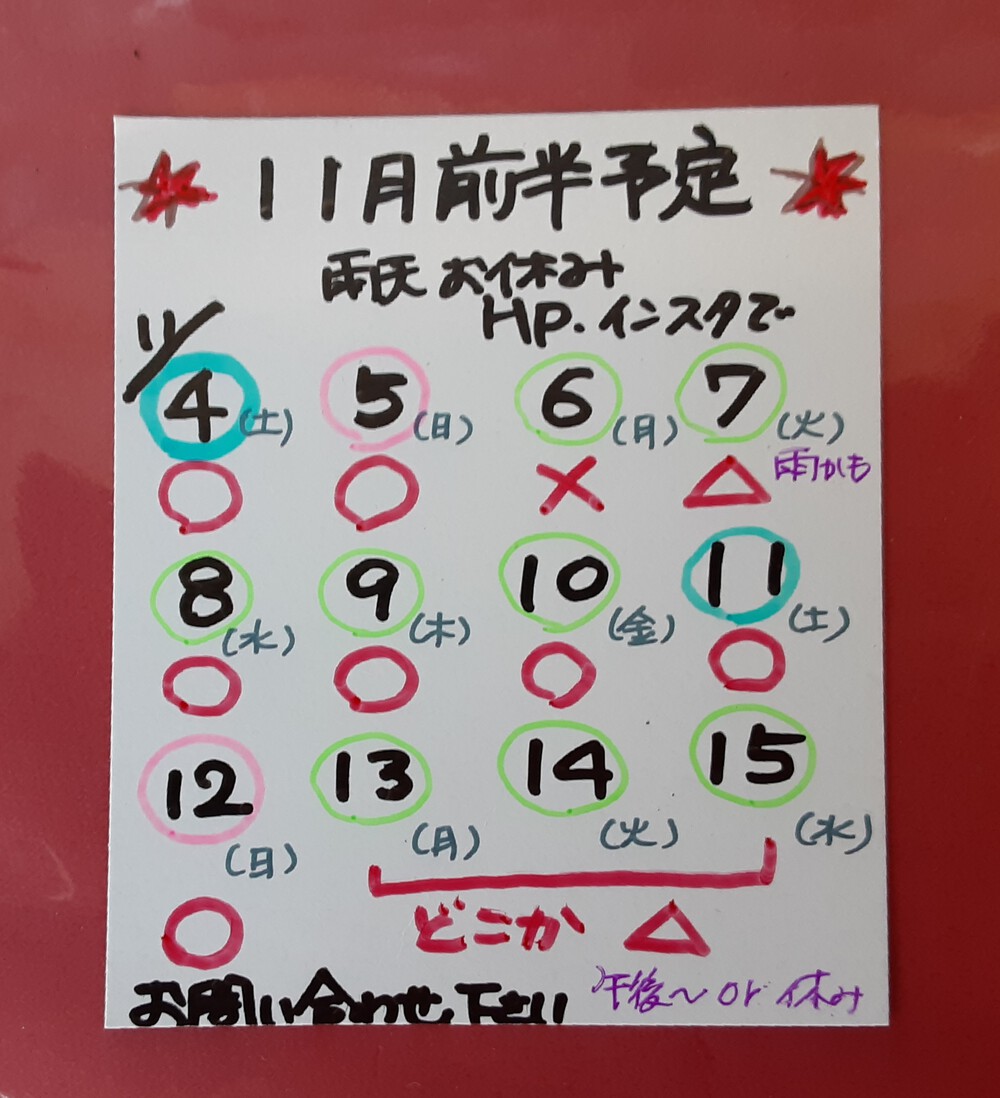 11月前半予定
雨天お休み
HP.インスタで
11/
4(土) 5(日) 6(月) 7(火)
○ ○ × △ 雨かも
8(水) 9(木) 10(金) 11(土)
○ ○ ○ ○
12(日) 13(月) 14(火) 15(水)
○ どこか △
お問い合わせ下さい 午後〜or休み